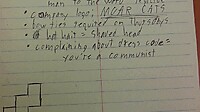 man to the word
• company logo: MOAR CATS
• bow ties required on Thursdays
• @ hot hat = shaved head
• complaining about dress code =
you're a communist